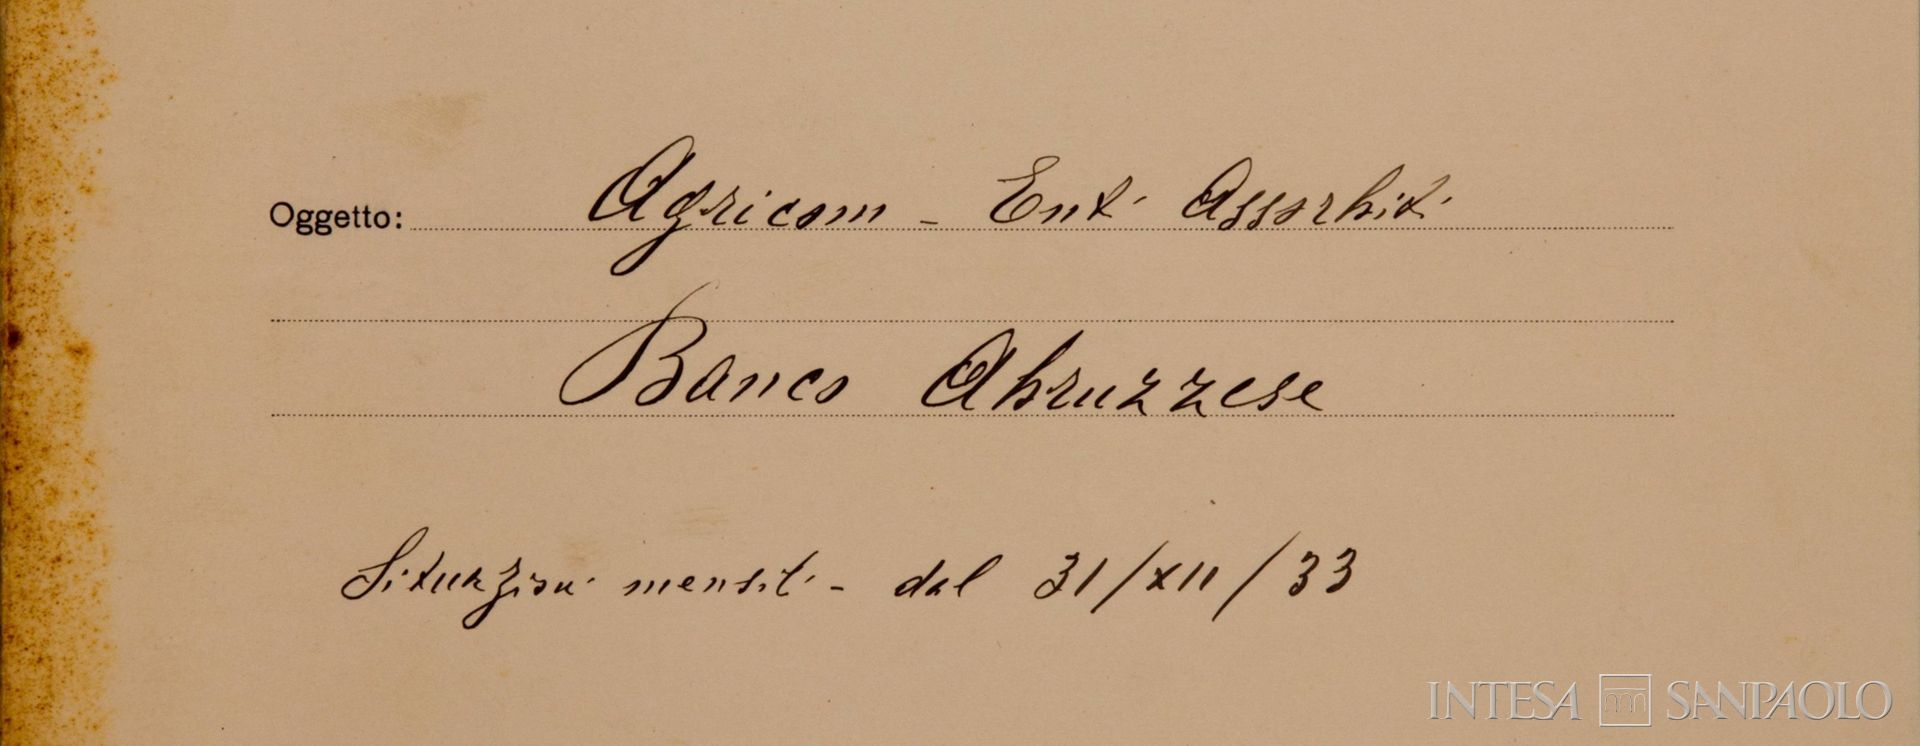 Oggetto: Agricom - Enti Assorbiti
Banco Abruzzese
Situazioni mensili - dal 31/XII/33
INTESA SANPAOLO